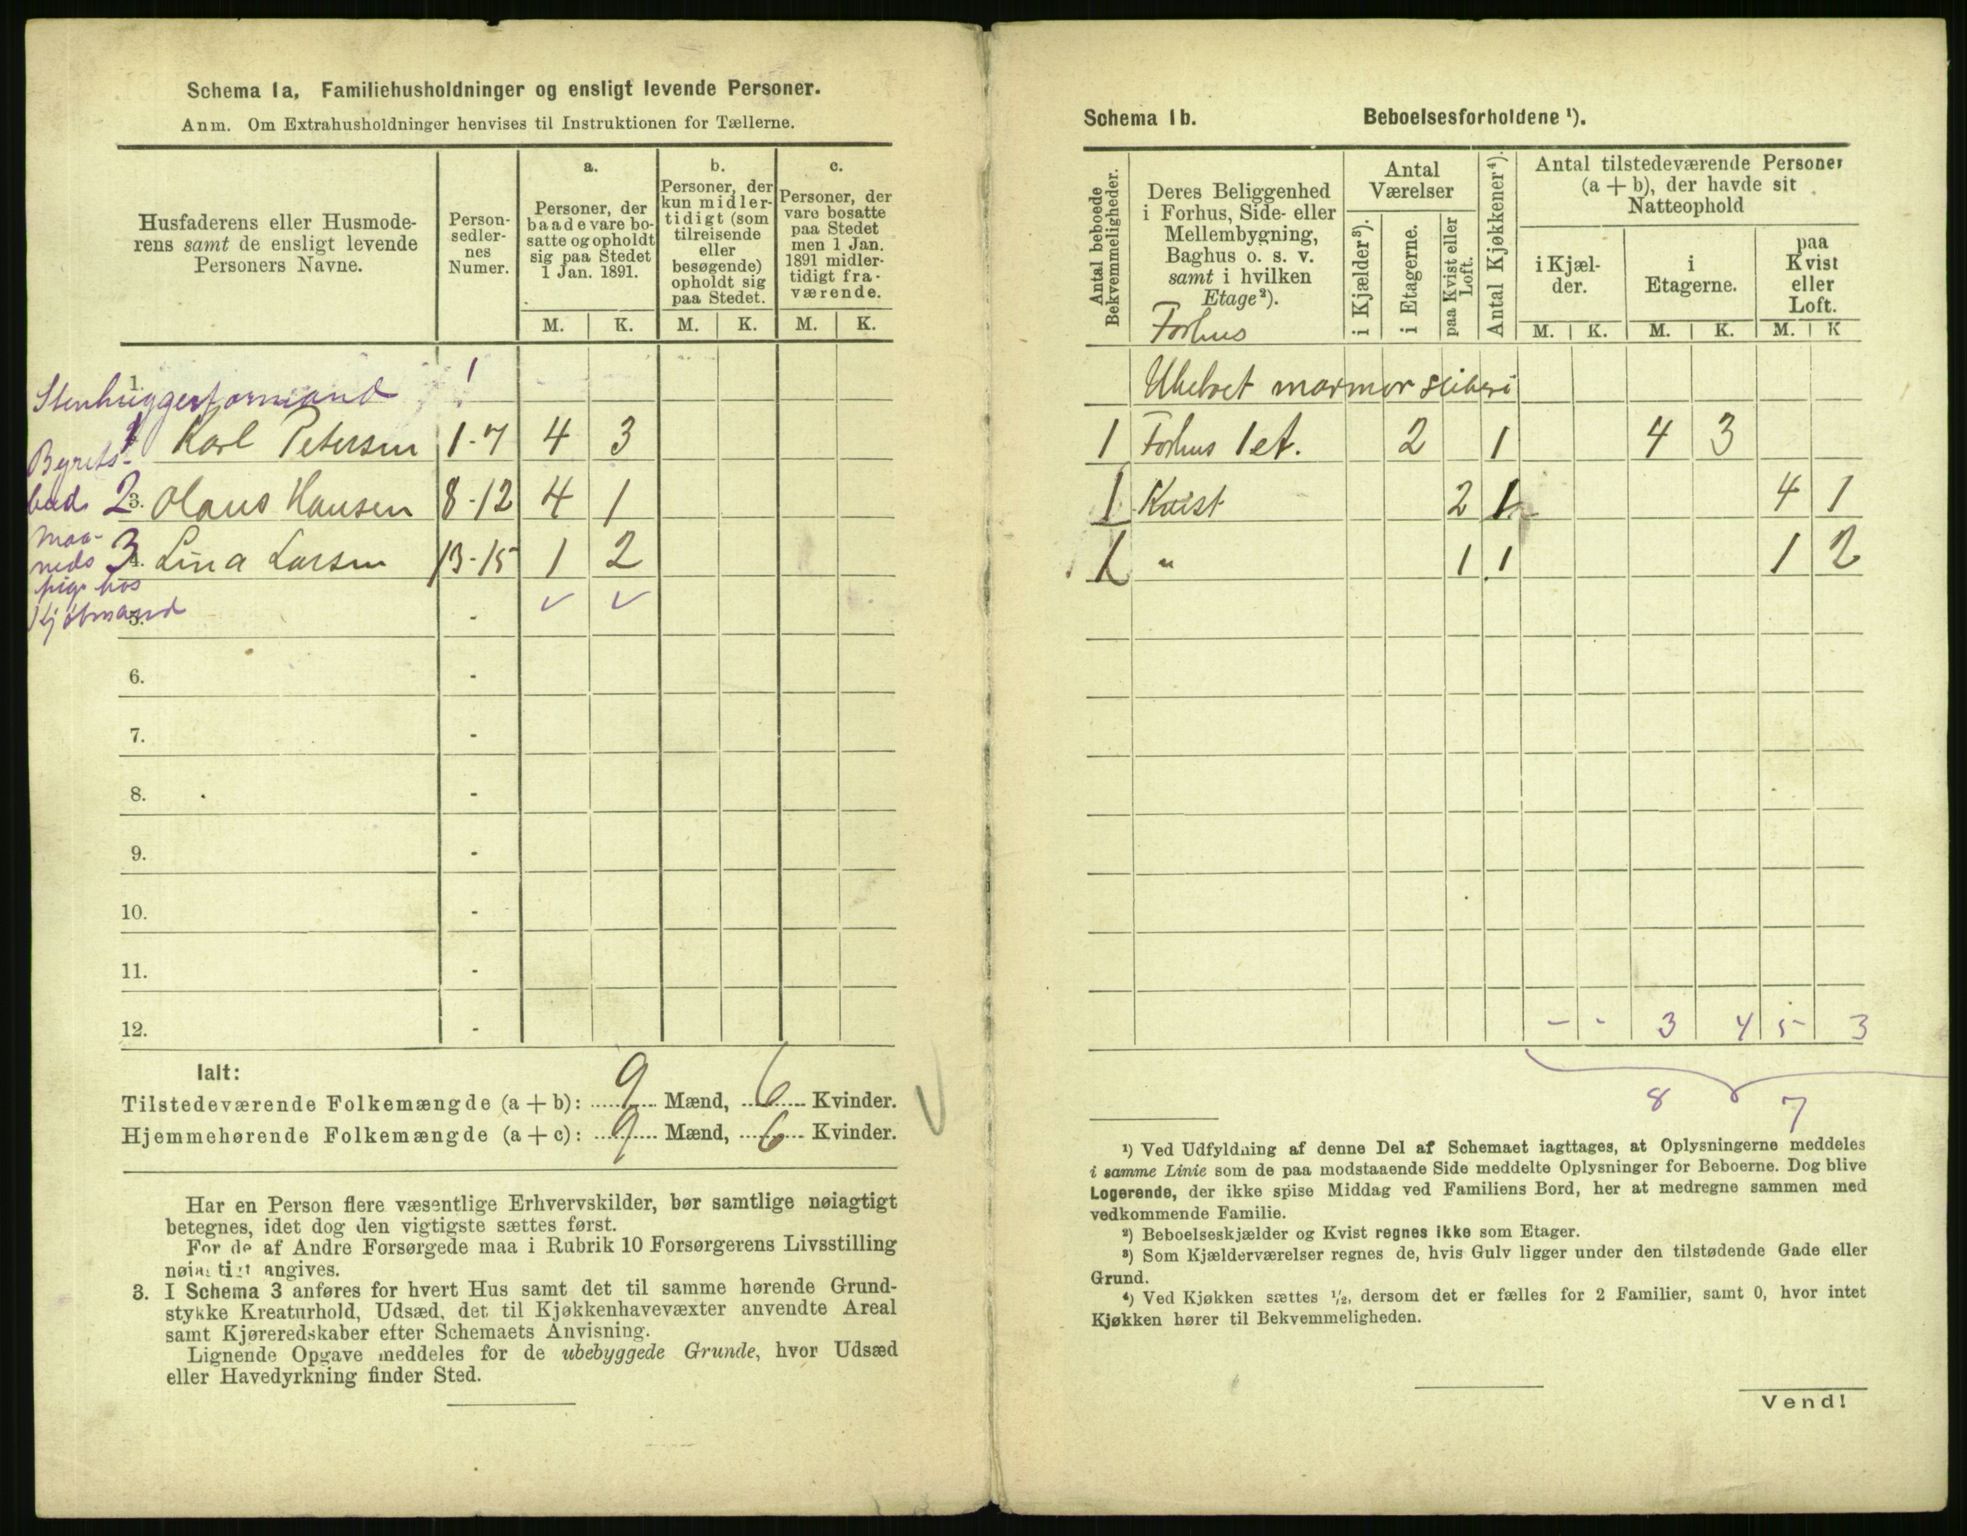 Schema 1a, Familiehusholdninger og ensligt levende Personer.
Anm. Om Extrahusholdninger henvises til Instruktionen for Tællerne.
Husfaderens eller Husmoderens samt de ensligt levende Personers Navne.
Personsedlernes Numer.
a.
Personer, der baade vare bosatte og opholdt sig paa Stedet 1 Jan. 1891.
b.
Personer, der kun midlertidigt (som tilreisende eller besøgende) opholdt sig paa Stedet.
c.
Personer, der vare bosatte paa Stedet men 1 Jan. 1891 midlertidigt fraværende.
M. K. M. K. M. K.
1. Stenhuggerformand
1 Karl Petersen 1-7 4 3
Byretsbud 2 3. Olaus Hansen 8-12 4 1
Maanedspige hos Kjøbmand 3 4. Lina Larsen 13-15 1 2
5. -
6. -
7. -
8. -
9. -
10. -
11. -
12. -
Ialt:
Tilstedeværende Folkemængde (a + b): 9 Mænd, 6 Kvinder.
Hjemmehørende Folkemængde (a + c): 9 Mænd, 6 Kvinder.
Har en Person flere væsentlige Erhvervskilder, bør samtlige nøiagtigt
betegnes, idet dog den vigtigste sættes først.
For de af Andre Forsørgede maa i Rubrik 10 Forsørgerens Livsstilling
nøiagtigt angives.
3. I Schema 3 anføres for hvert Hus samt det til samme hørende Grund-
stykke Kreaturhold, Udsæd, det til Kjøkkenhavevæxter anvendte Areal
samt Kjøreredskaber efter Schemaets Anvisning.
Lignende Opgave meddeles for de ubebyggede Grunde, hvor Udsæd
eller Havedyrkning finder Sted.
Schema 1b. Beboelsesforholdene ¹).
Antal beboede Bekvemmeligheder.
Deres Beliggenhed i Forhus, Side- eller Mellembygning, Baghus o. s. v. samt i hvilken Etage²).
Antal Værelser
i Kjælder³).
i Etagerne.
paa Kvist eller Loft.
Antal Kjøkkener⁴).
Antal tilstedeværende Personer (a + b), der havde sit Natteophold
i Kjælder.
i Etagerne.
paa Kvist eller Loft.
M. K. M. K. M. K
Forhus
Ubeboet marmorsliberi
1 Forhus 1 et. 2 1 4 3
1 Kvist 2 1 4 1
1 " 1 1 1 2
- - 3 4 5 3
8 7
¹) Ved Udfyldning af denne Del af Schemaet iagttages, at Oplysningerne meddeles
i samme Linie som de paa modstaaende Side meddelte Oplysninger for Beboerne. Dog blive
Logerende, der ikke spise Middag ved Familiens Bord, her at medregne sammen med
vedkommende Familie.
²) Beboelseskjælder og Kvist regnes ikke som Etager.
³) Som Kjælderværelser regnes de, hvis Gulv ligger under den tilstødende Gade eller
Grund.
⁴) Ved Kjøkken sættes ½, dersom det er fælles for 2 Familier, samt 0, hvor intet
Kjøkken hører til Bekvemmeligheden.
Vend!